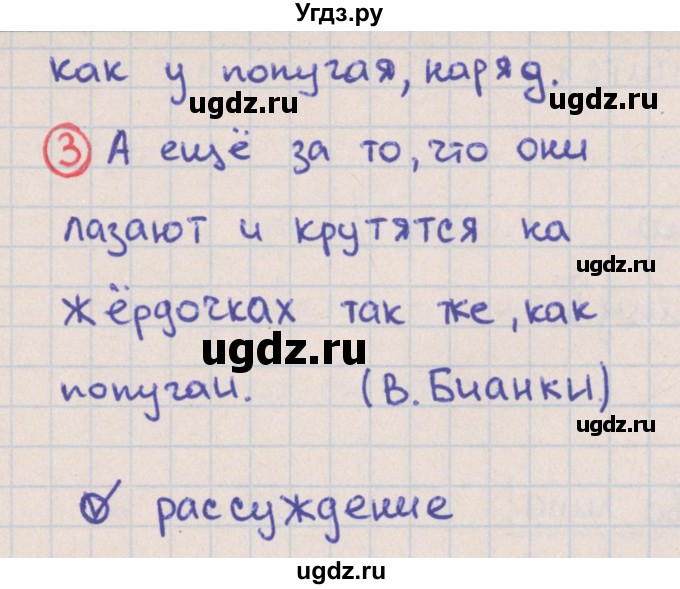 Угдз.ру
как у попугая, наряд.
ugdz.ru
ugdz.ru
3 А ещё за то, что они
лазают и крутятся на
ugdz.ru
жёрдочках так же, как
ugdz.ru
попугаи. (В. Бианки)
ugdz.ru
рассуждение
ugdz.ru